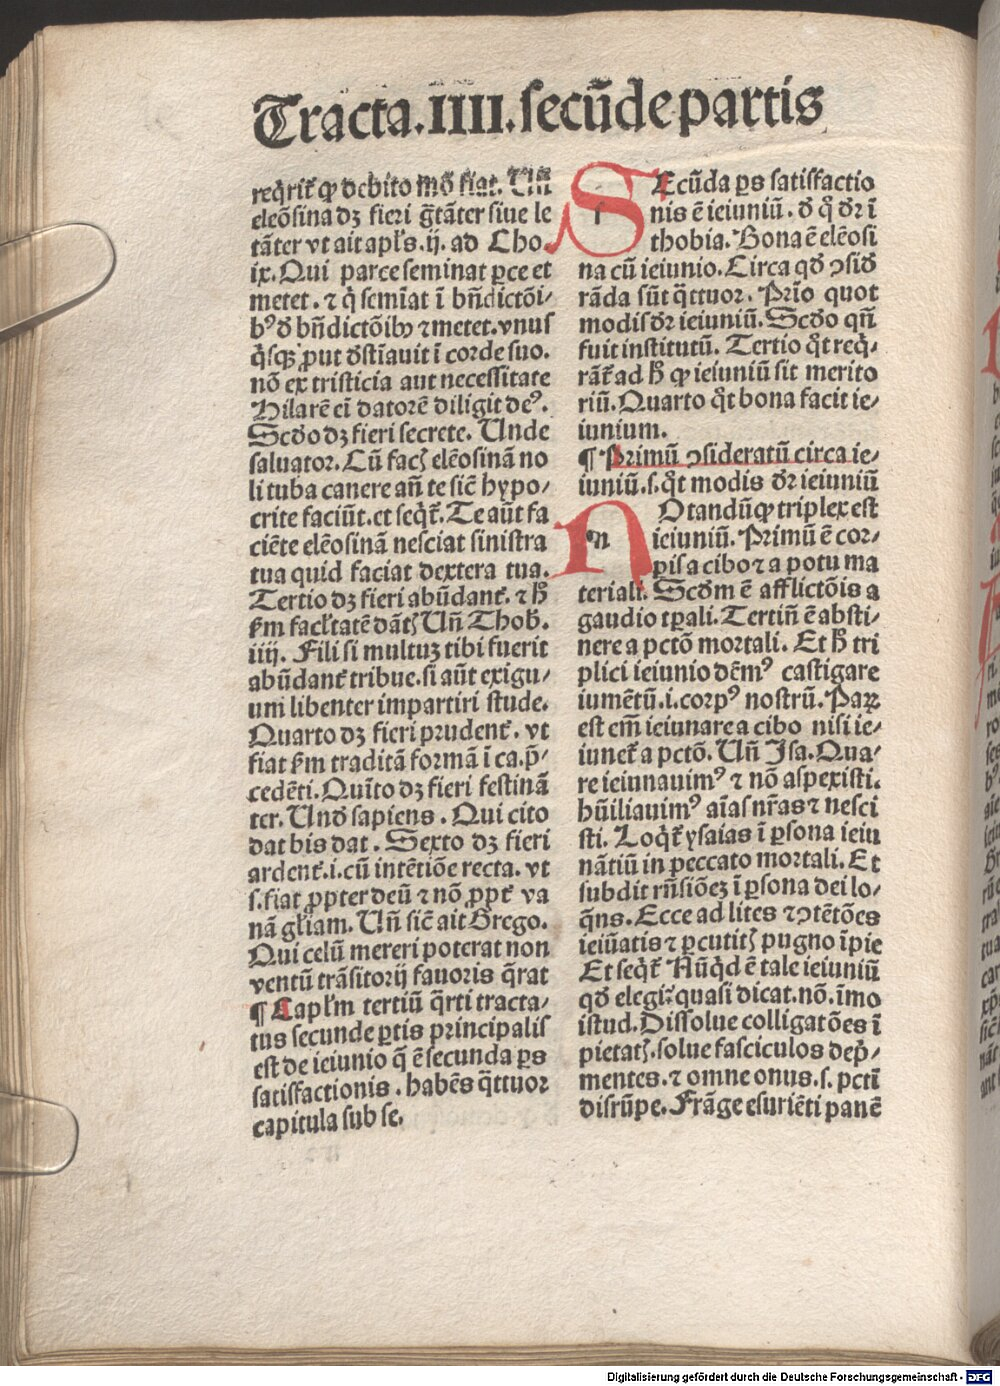 Tracta.IIII.secūde partis
req̄rit̄ qꝙ debito mō fiat. Vn̄
eleōsina dꝫ fieri ḡtāter siue le
tāter vt ait apl̄s.ij. ad Cho.
ix. Qui parce seminat ꝑce et
metet. ⁊ q̄ semīat ī bn̄dictōi⸗
bꝰ d̄ bn̄dictōibꝫ ⁊ metet. vnus
q̄sqꝫ ꝓut dstīauit ī corde suo.
nō ex tristicia aut necessitate
Hilarē ei datorē diligit deꝰ.
Scd̄o dꝫ fieri secrete. Unde
saluator. Cū facꝭ elēosinā no
li tuba canere an̄ te sic̄ hypo⸗
crite faciūt. et seqt̄. Te aūt fa
ciēte elēosinā nesciat sinistra
tua quid faciat dextera tua.
Tertio dꝫ fieri abūdant̄. ⁊ h̄
s̄m facl̄tatē dātꝭ Un̄ Thob̄.
iiij. Fili si multuꝫ tibi fuerit
abūdant̄ tribue. si aūt exigu⸗
um libenter impartiri stude.
Quarto dꝫ fieri prudent̄. vt
fiat s̄m traditā formā ī ca. p̄⸗
cedēti. Quīto dꝫ fieri festinā
ter. Und̄ sapiens. Qui cito
dat bis dat. Sexto dꝫ fieri
ardent̄. i. cū intētiōe recta. vt
s. fiat ꝓpter deū ⁊ nō ꝓpt̄ va
nā gl̄iam. Un̄ sic̄ ait Grego.
Qui celū mereri poterat non
ventū trāsitorij fauoris q̄rat
¶ Capl̄m tertiū q̄rti tracta⸗
tus secunde ꝑtis principalis
est de ieiunio q̄ ē secunda ꝑs
satisfactionis. habēs q̄ttuor
capitula sub se.
SEcūda ꝑs satisfactio
nis ē ieiuniū. d̄ q̄ dr̄ ī
thobia. Bona ē elēosi
na cū ieiunio. Circa qd̄ ꝯsid̄
rāda sūt q̄ttuor. Prīo quot
modis dr̄ ieiuniū. Scd̄o qn̄
fuit institutū. Tertio q̄t reqͥ⸗
rāt̄ ad h̄ qꝙ ieiuniū sit merito
riū. Quarto q̄t bona facit ie⸗
iunium.
¶ Primū ꝯsideratū circa ie⸗
iuniū. s. q̄t modis dr̄ ieiuniū
NOtandū qꝙ triplex est
ieiuniū. Primū ē cor⸗
ꝑis a cibo ⁊ a potu ma
teriali. Scd̄m ē afflictōis a
gaudio tꝑali. Tertiū ē absti⸗
nere a pctō mortali. Et h̄ tri
plici ieiunio dēmꝰ castigare
iumētū. i. corpꝰ nostrū. Paꝝ
est em̄ ieiunare a cibo nisi ie⸗
iunet̄ a pctō. Un̄ Isa. Qua⸗
re ieiunauimꝰ ⁊ nō aspexisti.
hūiliauimꝰ aīas nr̄as ⁊ nesci
sti. Loqt̄ ysaias ī ꝑsona ieiu
nātiū in peccato mortali. Et
subdit rn̄siōeꝫ ī ꝑsona dei lo⸗
q̄ns. Ecce ad lites ⁊ ꝯtētōes
ieiūatis ⁊ ꝑcutitꝭ pugno īpie
Et seqt̄ Nūqd̄ ē tale ieiuniū
qd̄ elegi: quasi dicat. nō. īmo
istud. Dissolue colligatōes ī
pietatꝭ. solue fasciculos dep̄⸗
mentes. ⁊ omne onus. s. pcti
disrūpe. Frāge esuriēti panē
Digitalisierung gefördert durch die Deutsche Forschungsgemeinschaft - DFG